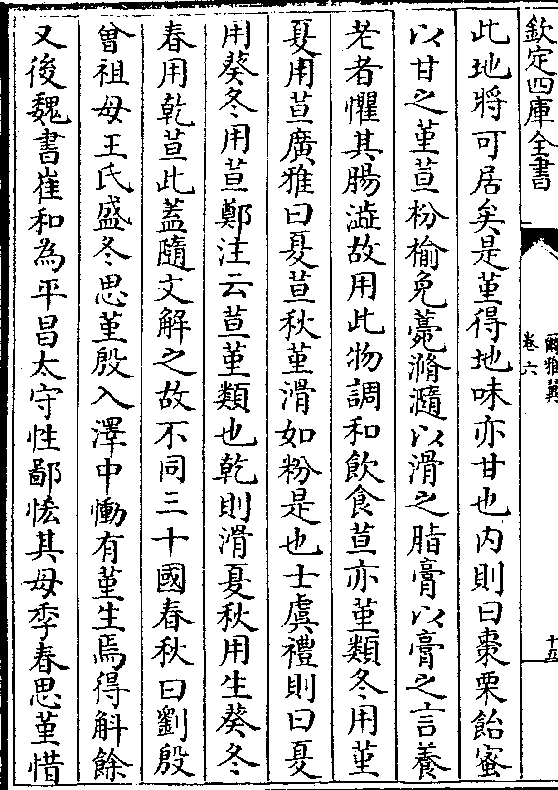 欽定四庫全書
爾雅翼
卷六
十五
此地將可居矣是堇得地味亦甘也内則曰棗栗飴蜜
以甘之堇荁枌榆免薧滫瀡以滑之脂膏以膏之言養
老者懼其腸澁故用此物調和飲食荁亦堇類冬用堇
夏用荁廣雅曰夏荁秋堇滑如粉是也士虞禮則曰夏
用葵冬用荁鄭注云荁堇類也乾則滑夏秋用生葵冬
春用乾荁此蓋隨文解之故不同三十國春秋曰劉殷
曾祖母王氏盛冬思堇殷入澤中慟有堇生焉得斛餘
又後魏書崔和為平昌太守性鄙恡其母季春思堇惜